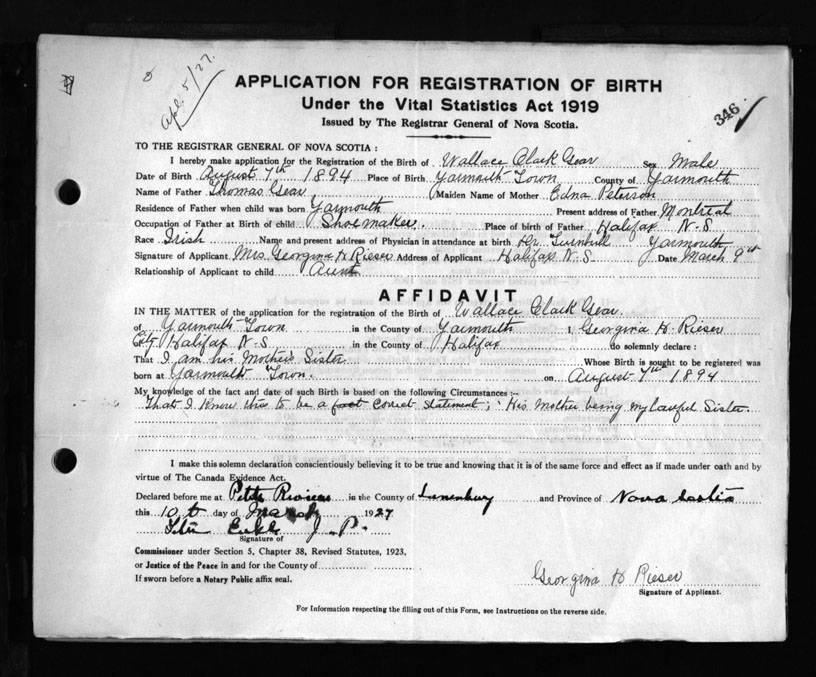 Apl. 5/27.
APPLICATION FOR REGISTRATION OF BIRTH
Under the Vital Statistics Act 1919
Issued by The Registrar General of Nova Scotia.
346
TO THE REGISTRAR GENERAL OF NOVA SCOTIA :
I hereby make application for the Registration of the Birth of Wallace Clark Gear Sex Male
Date of Birth August 7th 1894 Place of Birth Yarmouth Town County of Yarmouth
Name of Father Thomas Gear Maiden Name of Mother Edna Peterson
Residence of Father when child was born Yarmouth Present address of Father Montreal
Occupation of Father at Birth of child Shoemaker. Place of birth of Father Halifax N.S
Race Irish Name and present address of Physician in attendance at birth Dr Turnbull Yarmouth
Signature of Applicant Mrs Georgina H Rieser Address of Applicant Halifax N.S Date March 9th
Relationship of Applicant to child Aunt
AFFIDAVIT
IN THE MATTER of the application for the registration of the Birth of Wallace Clark Gear.
of Yarmouth Town in the County of Yarmouth I, Georgina H. Rieser
City Halifax N.S in the County of Halifax do solemnly declare :
That I am his Mother's Sister Whose Birth is sought to be registered was
born at Yarmouth Town. on August 7th 1894
My knowledge of the fact and date of such Birth is based on the following Circumstances :—
That I know this to be a fact correct statement; His Mother being my lawful Sister.
I make this solemn declaration conscientiously believing it to be true and knowing that it is of the same force and effect as if made under oath and by
virtue of The Canada Evidence Act.
Declared before me at Petite Riviere in the County of Lunenburg and Province of Nova Scotia
this 10th day of March 1927
J.P.
Signature of
Commissioner under Section 5, Chapter 38, Revised Statutes, 1923.
or Justice of the Peace in and for the County of
If sworn before a Notary Public affix seal.
Georgina H Rieser
Signature of Applicant.
For Information respecting the filling out of this Form, see Instructions on the reverse side.